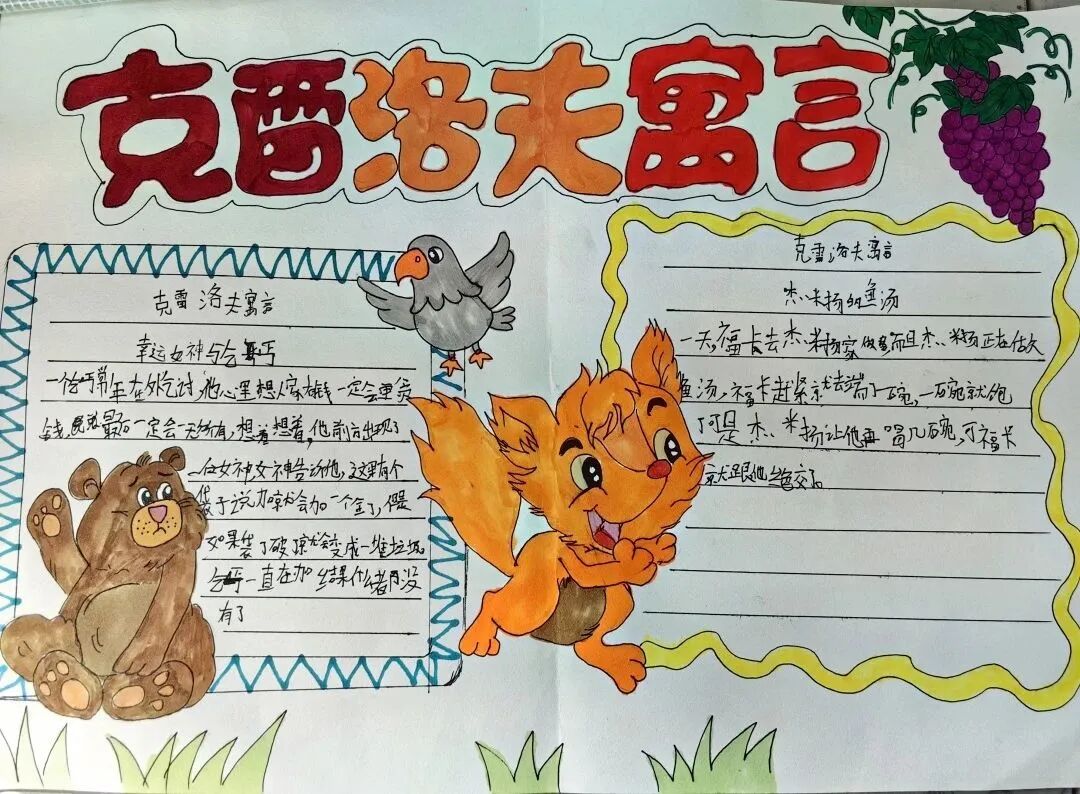 克雷洛夫寓言
克雷洛夫寓言
幸运女神与乞丐
一位丐常年在外乞讨,他心里想人家有钱一定会更贪
钱,最后一定会一无所有,想着想着,他前方出现了
一位女神女神告诉他,这里有个
袋子说加就会加一个金子,但是
如果袋子破了就会变成一堆垃圾
乞丐一直在加结果什么都没
有了
克雷洛夫寓言
杰米扬的鱼汤
一天,福卡去杰米扬家做客而且杰米扬正在
鱼汤,福卡赶紧就去端了一碗,一碗就饱
了可是杰米扬让他再喝几碗,可福卡
就跟他绝交了。